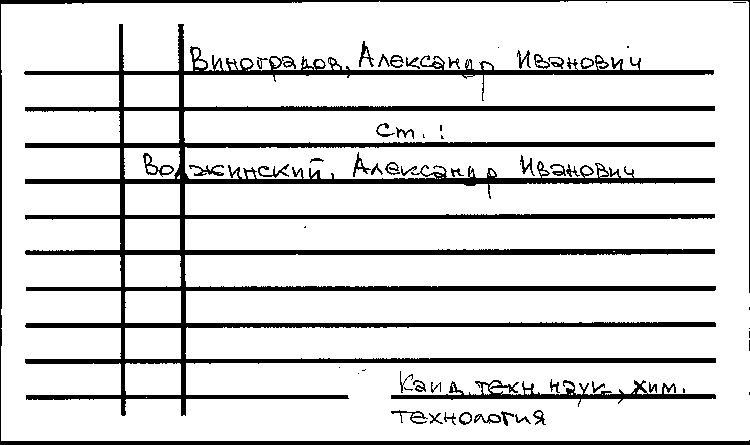 Виноградов, Александр Иванович
ст. :
Волжинский, Александр Иванович
Канд. техн. наук, хим.
технология